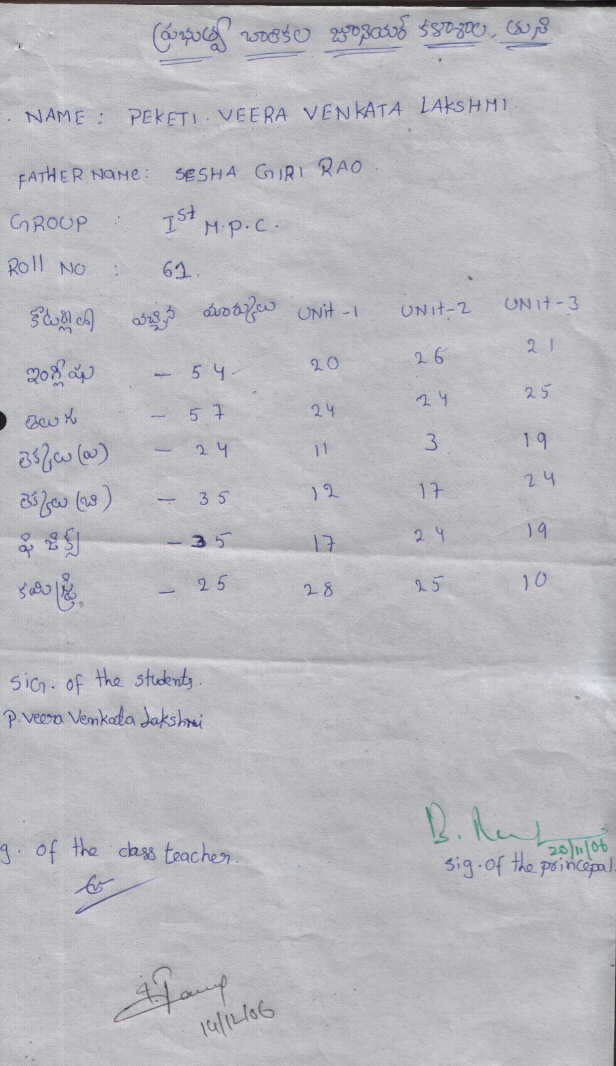 ప్రభుత్వ బాలికల జూనియర్ కళాశాల, తుని
NAME : PEKETI. VEERA VENKATA LAKSHMI.
FATHER NAME: SESHA GIRI RAO.
GROUP : Ist M.P.C.
Roll NO : 61.
వచ్చిన మార్కులు UNit-1 UNIt-2 UNIt-3
ఇంగ్లీషు - 54 20 26 21
తెలుగు - 57 24 24 25
లెక్కలు (ఎ) - 24 11 3 19
లెక్కలు (బి) - 35 12 17 24
ఫిజిక్స్ - 35 17 24 19
కెమిస్ట్రి - 25 28 25 10
SIG. of the students.
P. Veera Venkata Lakshmi
20/11/06
g. of the class teacher.
sig. of the princepal.
14/12/06